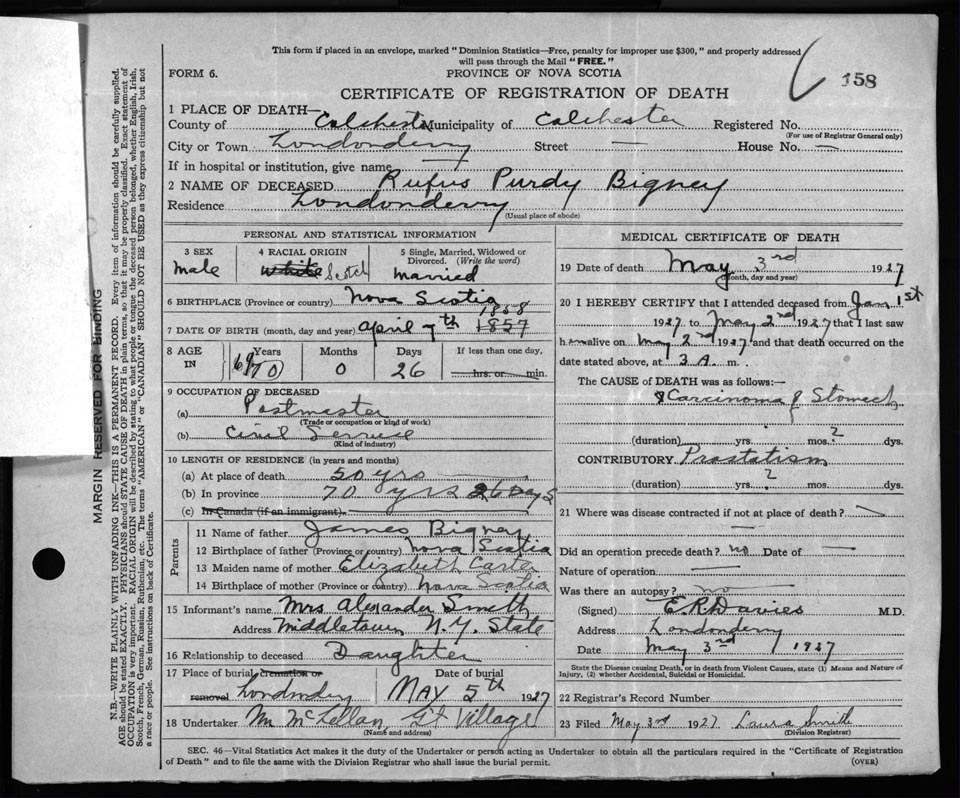 This form if placed in an envelope, marked "Dominion Statistics—Free, penalty for improper use $300," and properly addressed
will pass through the Mail "FREE."
FORM 6.
PROVINCE OF NOVA SCOTIA
158
CERTIFICATE OF REGISTRATION OF DEATH
1 PLACE OF DEATH—
County of Colchester Municipality of Colchester Registered No.
(For use of Registrar General only)
City or Town Londonderry Street — House No. —
If in hospital or institution, give name —
2 NAME OF DECEASED Rufus Purdy Bigney
Residence Londonderry
(Usual place of abode)
PERSONAL AND STATISTICAL INFORMATION
3 SEX
male
4 RACIAL ORIGIN
white Scotch
5 Single, Married, Widowed or
Divorced. (Write the word)
married
6 BIRTHPLACE (Province or country) Nova Scotia
1858
7 DATE OF BIRTH (month, day and year) April 7th 1857
8 AGE
IN
Years
69 70
Months
0
Days
26
If less than one day,
hrs. or min.
9 OCCUPATION OF DECEASED
(a) Postmaster
(Trade or occupation or kind of work)
(b) Civil Service
(Kind of industry)
10 LENGTH OF RESIDENCE (in years and months)
(a) At place of death 50 yrs
(b) In province 70 yrs 26 Days
(c) In Canada (if an immigrant)
Parents
11 Name of father James Bigney
12 Birthplace of father (Province or country) Nova Scotia
13 Maiden name of mother Elizabeth Carter
14 Birthplace of mother (Province or country) Nova Scotia
15 Informant's name Mrs Alexander Smith
Address Middletown, N.Y. State
16 Relationship to deceased Daughter
17 Place of burial cremation or
removal Londonderry
Date of burial
MAY 5th 1927
18 Undertaker Wm McLellan, Gt Village
(Name and address)
MEDICAL CERTIFICATE OF DEATH
19 Date of death May 3rd 1927
(Month, day and year)
20 I HEREBY CERTIFY that I attended deceased from Jan 1st
1927 to May 2nd 1927 that I last saw
him alive on May 2nd 1927 and that death occurred on the
date stated above, at 3 A. m.
The CAUSE of DEATH was as follows:—
Carcinoma of Stomach
(duration) yrs. mos. ? dys.
CONTRIBUTORY Prostatism
(duration) yrs. ? mos. dys.
21 Where was disease contracted if not at place of death?
—
Did an operation precede death? no Date of —
Nature of operation —
Was there an autopsy? no
(Signed) E.R. Davies M.D.
Address Londonderry
Date May 3rd 1927
State the Disease causing Death, or in death from Violent Causes, state (1) Means and Nature of
Injury, (2) whether Accidental, Suicidal or Homicidal.
22 Registrar's Record Number
23 Filed May 3rd 1927 Laura Smith
(Division Registrar)
SEC. 46—Vital Statistics Act makes it the duty of the Undertaker or person acting as Undertaker to obtain all the particulars required in the "Certificate of Registration
of Death" and to file the same with the Division Registrar who shall issue the burial permit.
(OVER)
MARGIN RESERVED FOR BINDING
N.B.—WRITE PLAINLY WITH UNFADING INK—THIS IS A PERMANENT RECORD. Every item of information should be carefully supplied.
AGE should be stated EXACTLY. PHYSICIANS should STATE CAUSE OF DEATH in plain terms, so that it may be properly classified. Exact statement of
OCCUPATION is very important. RACIAL ORIGIN will be described by stating to what people or tongue the deceased person belonged, whether English, Irish,
Scotch, French, German, Russian, Ruthenian, etc. The terms "AMERICAN" or "CANADIAN" SHOULD NOT BE USED as they express citizenship but not
a race or people. See instructions on back of Certificate.